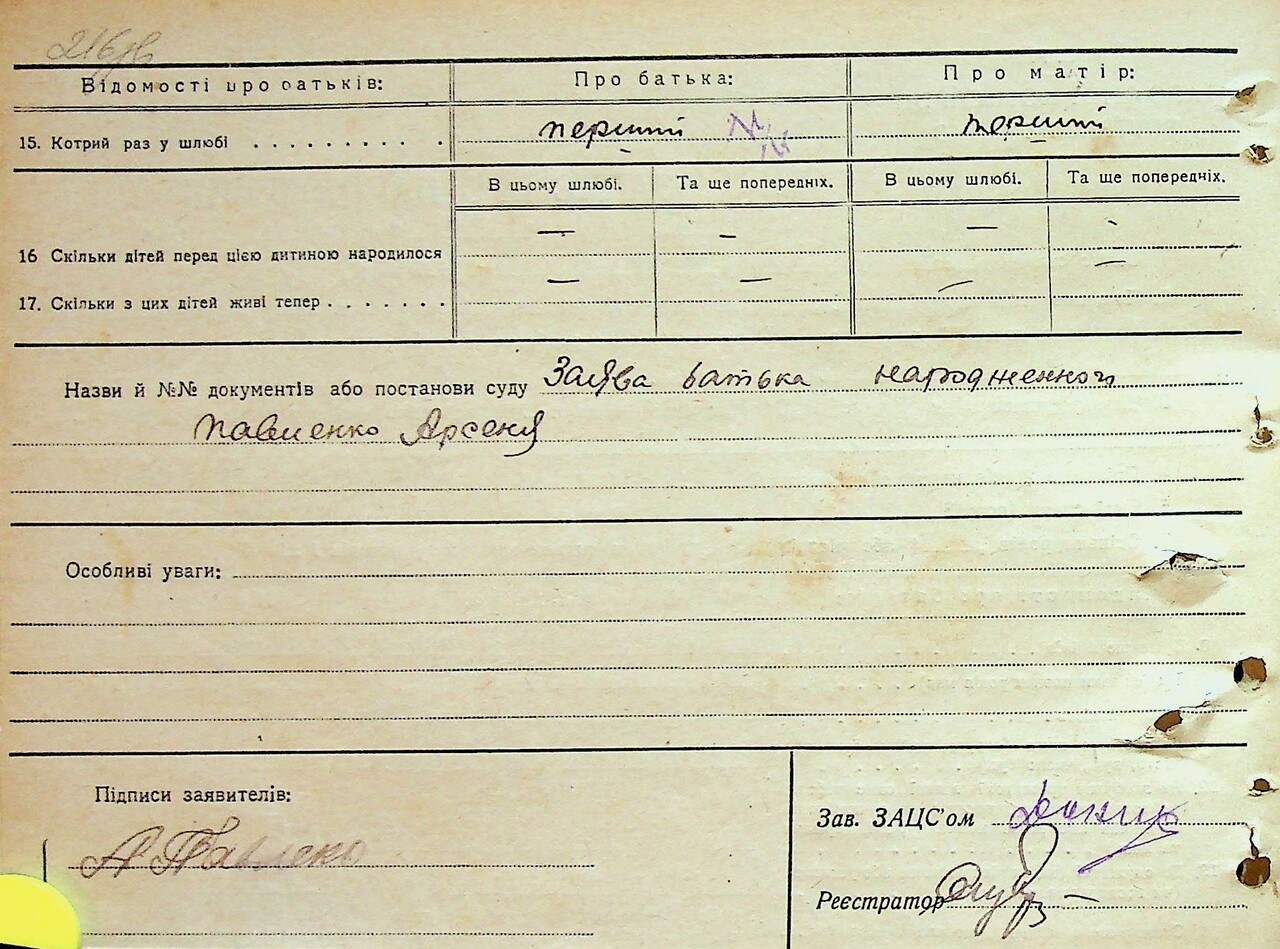 216зв
Відомості про батьків: Про батька: Про матір:
15. Котрий раз у шлюбі . . . . . . . . . . перший перший
В цьому шлюбі. Та ще попередніх. В цьому шлюбі. Та ще попередніх.
16 Скільки дітей перед цією дитиною народилося — — — -
17. Скільки з цих дітей живі тепер . . . . . . . — — — —
Назви й №№ документів або постанови суду Заява батька народженого
Павленко Арсенія
Особливі уваги:
Підписи заявителів:
Зав. ЗАЦС'ом
А Павленко
Реєстратор